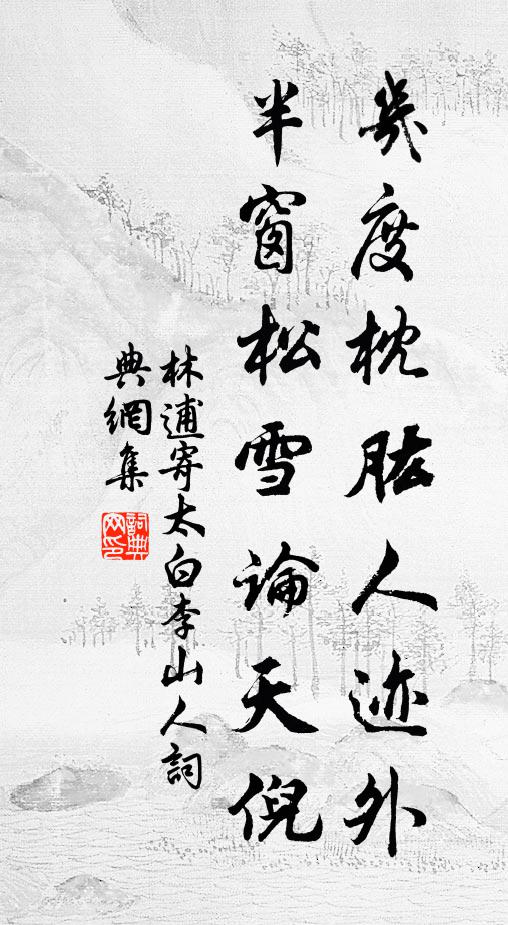 幾度枕肱人迹外
半窗松雪論天倪
林逋寄太白李山人詞
典網集
詞典
网印